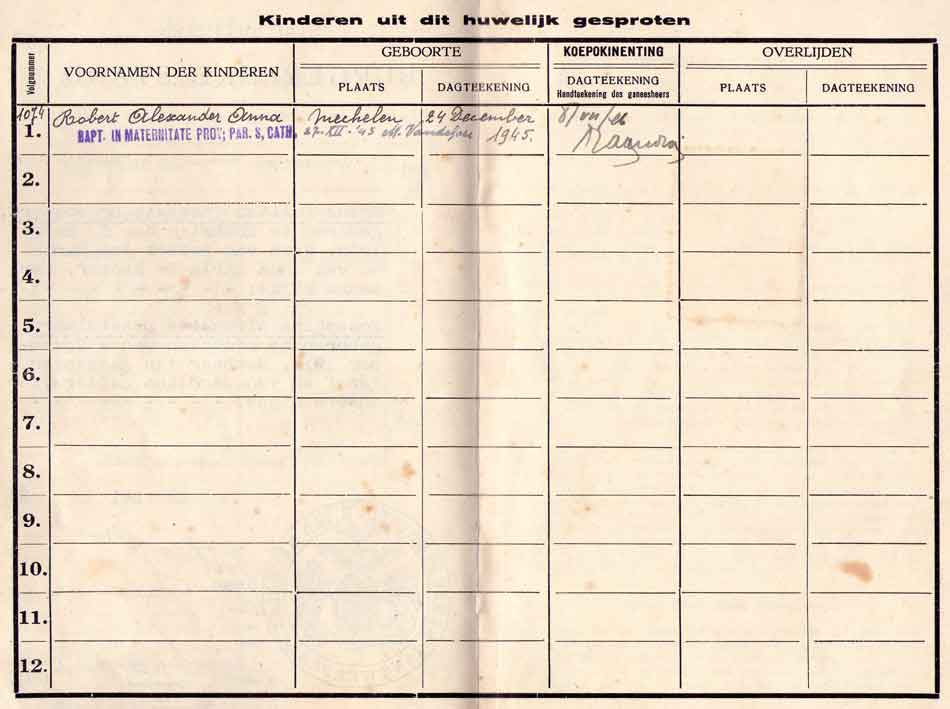 Kinderen uit dit huwelijk gesproten
Volgnummer
VOORNAMEN DER KINDEREN
GEBOORTE
PLAATS
DAGTEEKENING
KOEPOKINENTING
DAGTEEKENING
Handteekening des geneesheers
OVERLIJDEN
PLAATS
DAGTEEKENING
1074
1.
Robert Alexander Anna
BAPT. IN MATERNITATE PROV; PAR. S, CATH.
Mechelen
27-XII-'45 M.
24 December
1945.
2.
3.
4.
5.
6.
7.
8.
9.
10.
11.
12.